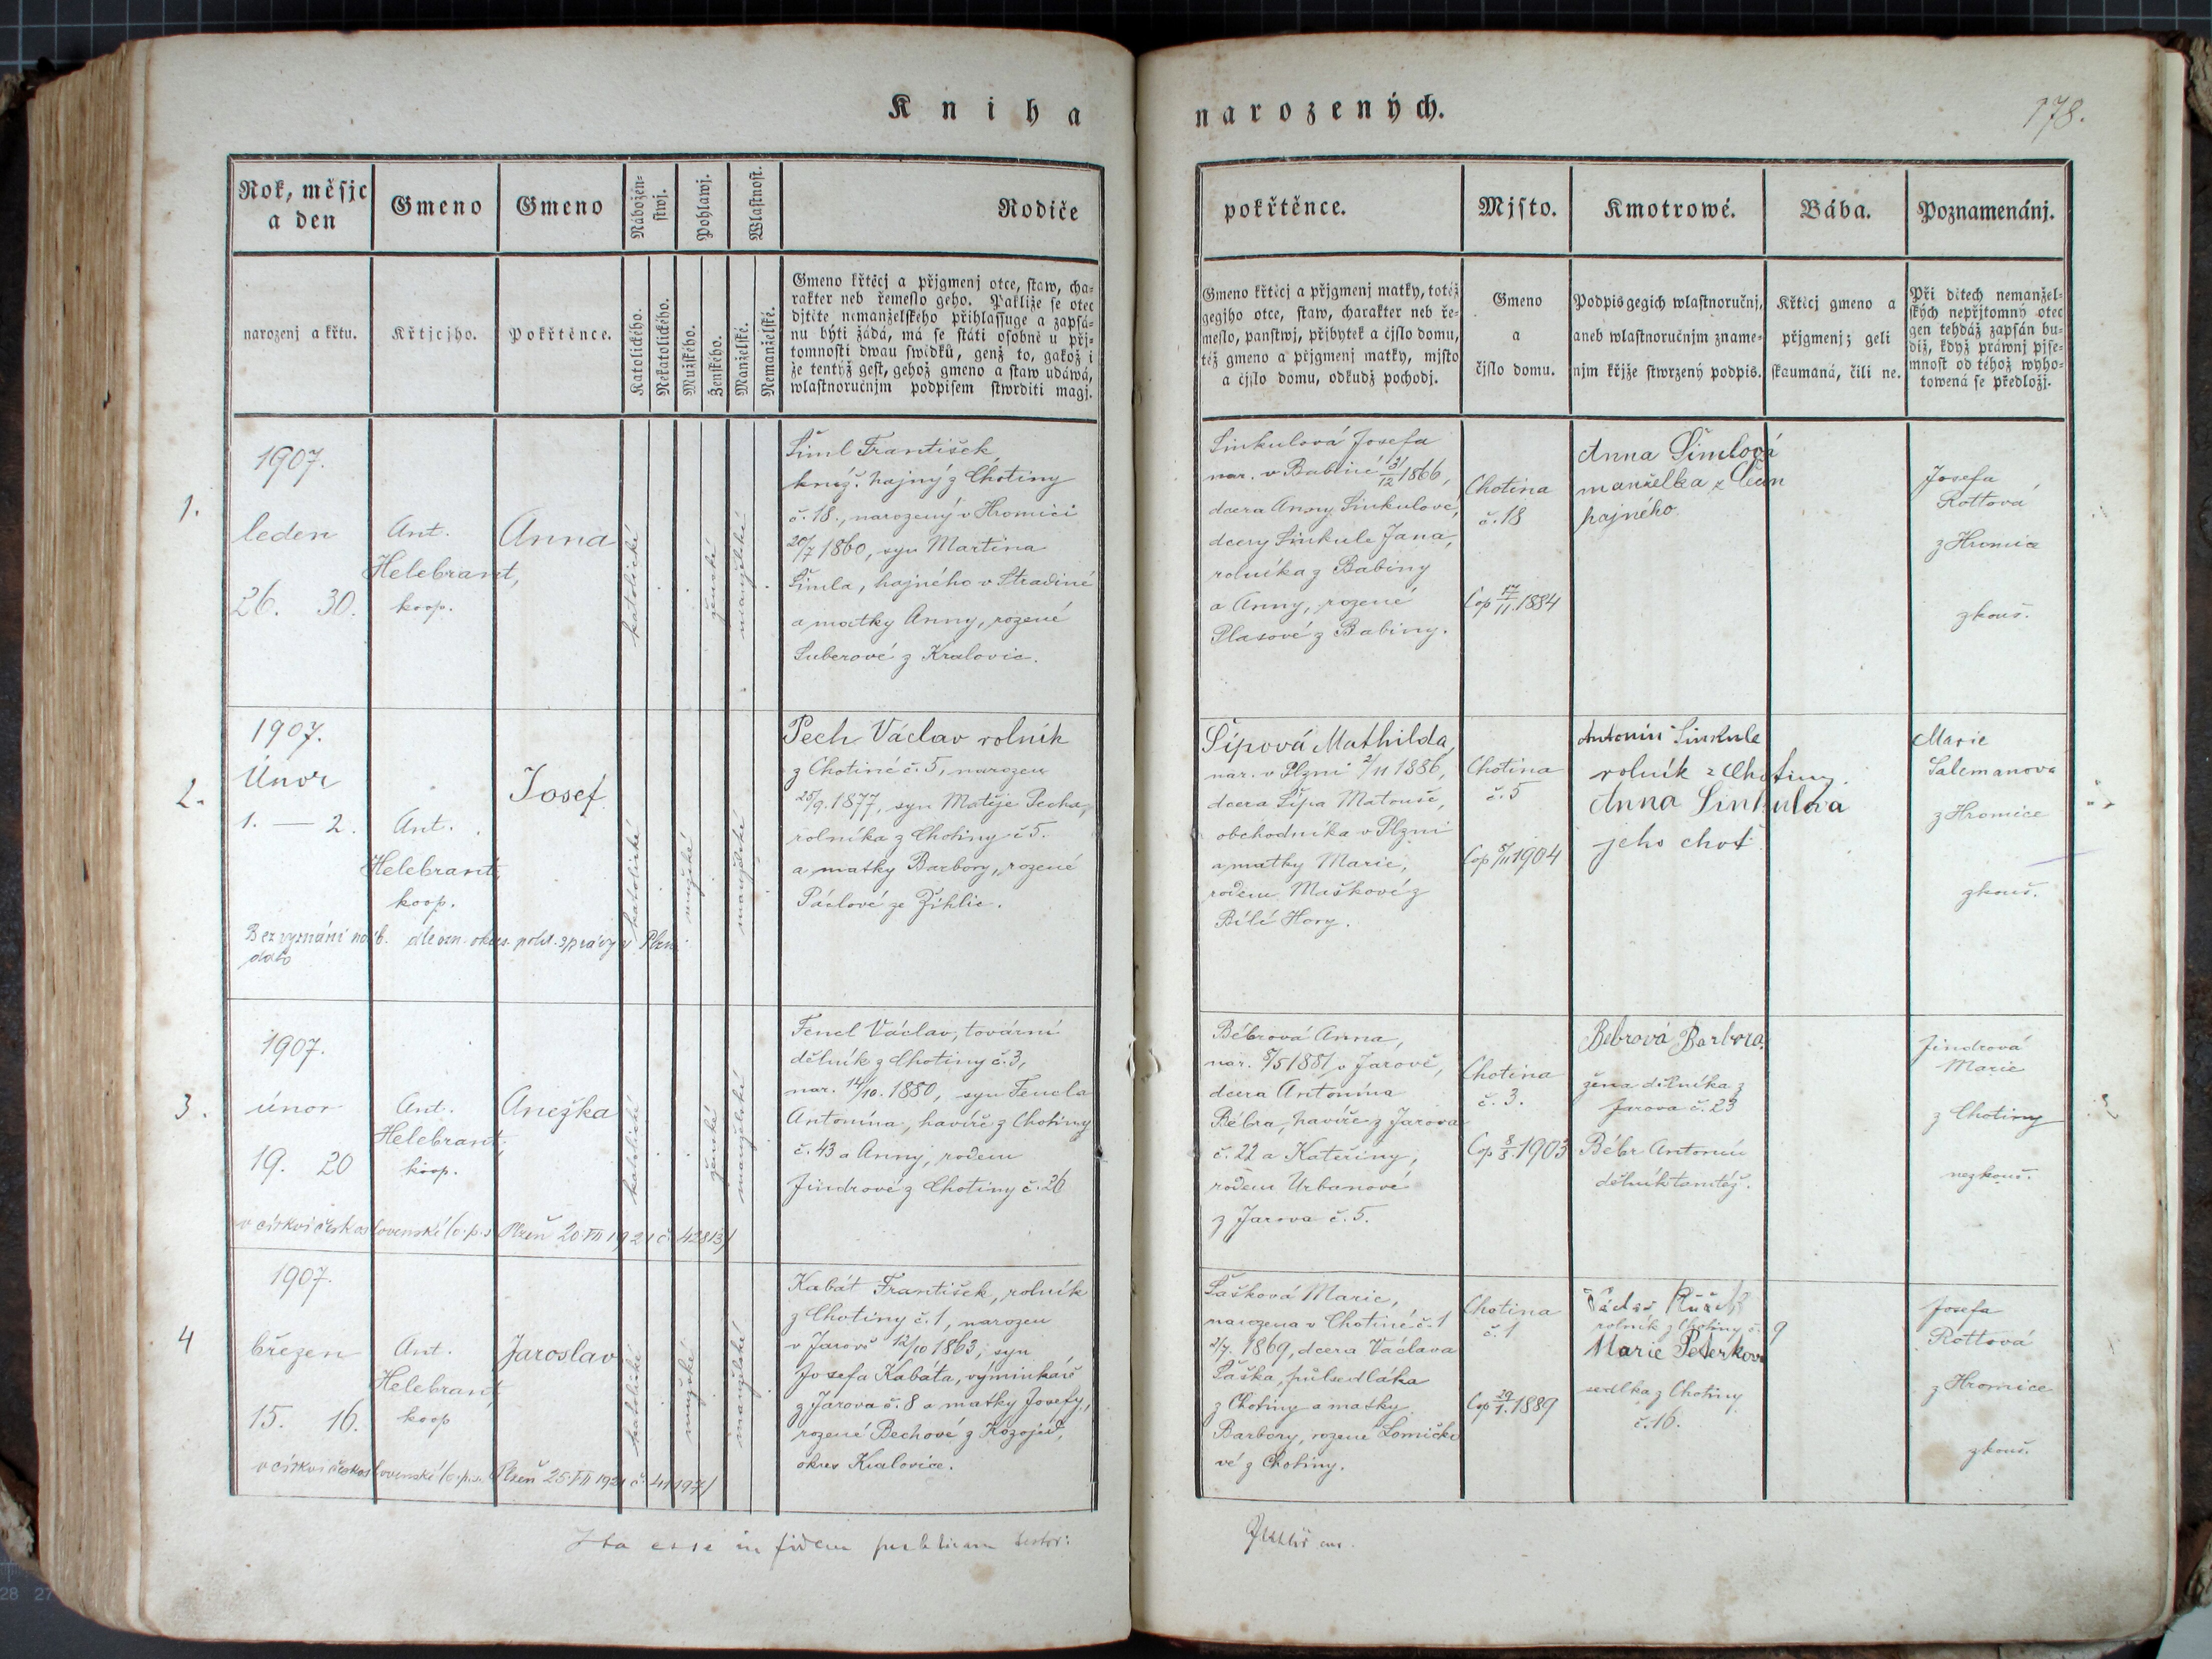 Kniha narozených.
178.
Rok, měsjc
a den
Gmeno
Gmeno
Nábožen-
stwj.
Pohlawj.
Wlastnost.
Rodiče
pokřtěnce.
Mjsto.
Kmotrowé.
Bába.
Poznamenánj.
narozenj a křtu.
Křtjcjho.
Pokřtěnce.
Katolického.
Nekatolického.
Mužského.
Ženského.
Manželské.
Nemanželské.
Gmeno křtěcj a přjgmenj otce, staw, cha-
rakter neb řemeslo geho. Pakliže se otec
djtěte nemanželského přihlassuge a zapsá-
nu býti žádá, má se státi osobně u přj-
tomnosti dwau swědků, genž to, gakož i
že tentýž gest, gehož gmeno a staw udáwá,
wlastnoručnjm podpisem stwrditi magj.
Gmeno křtěcj a přjgmenj matky, totéž
gegjho otce, staw, charakter neb ře-
meslo, panstwj, přjbytek a čjslo domu,
též gmeno a přjgmenj matky, mjsto
a čjslo domu, odkudž pochodj.
Gmeno
a
čjslo domu.
Podpis gegich wlastnoručnj,
aneb wlastnoručnjm zname-
njm křjže stwrzený podpis.
Křtěcj gmeno a
přjgmenj; geli
skaumaná, čili ne.
Při dětech nemanžel-
ských nepřjtomný otec
gen tehdáž zapsán bu-
diž, když práwnj pjse-
mnost od téhož wyho-
towená se předložj.
1.
1907.
leden
26. 30.
Ant.
Helebrant,
koop.
Anna
katolické
ženské
manželské
Šiml František,
kníž. hajný z Chotiny
č. 18., narozený v Hromici
20/7 1860, syn Martina
Šimla, hajného v Stradině
a matky Anny, rozené
Suberové z Kralovic.
Sinkulová Josefa
nar. v Babině 31/12 1866,
dcera Anny Sinkulové,
dcery Sinkule Jana,
rolníka z Babiny
a Anny, rozené
Plasové z Babiny.
Chotina
č. 18
Cop 17/11. 1884
Anna Šimlová
manželka
hajného
Josefa
Rottová
z Hromice
zkouš.
2.
1907.
Únor
1. — 2.
Ant.
Helebrant,
koop.
Josef
katolické
mužské
manželské
Bez vyznání náb. dle ozn. okres. polit. správy v Plzni
Pech Václav rolník
z Chotiné č. 5, narozen
25/9. 1877, syn Matěje Pecha,
rolníka z Chotiny č 5.
a matky Barbory, rozené
Páclové ze Žihlic.
Šípová Mathilda,
nar. v Plzni 2/11 1886,
dcera Šípa Matouše,
obchodníka v Plzni
a matky Marie,
rodem Maškové z
Bílé Hory.
Chotina
č. 5
Cop 8/11 1904
Antonín Sinkule
rolník z Chotiny.
Anna Sinkulova
jeho choť
Marie
Salemanova
z Hromice
zkouš.
3.
1907.
únor
19. 20
Ant.
Helebrant,
koop.
Anežka
katolické
ženské
manželské
v církvi československé (o. p. s. Plzeň 20 VII 1921 č. 42813)
Fencl Václav, tovární
dělník z Chotiny č. 3,
nar. 14/10. 1880, syn Fencla
Antonína, havíře z Chotiny
č. 43 a Anny, rodem
Jindrové z Chotiny č. 26
Bébrová Anna,
nar. 8/5 1881 v Jarově,
dcera Antonína
Bébra, havíře z Jarova
č. 22 a Kateřiny,
rodem Urbanové
z Jarova č. 5.
Chotina
č. 3.
Cop 8/8. 1903
Bebrová Barbora.
žena dělníka z
Jarova č. 23
Bébr Antonín
dělník tamtéž.
Jindrová
Marie
z Chotiny
nezkouš.
4
1907.
březen
15. 16.
Ant.
Helebrant,
koop
Jaroslav
katolické
mužské
manželské
v církvi československé (o. p. s. Plzeň 25 VII 1921 č. 41197)
Kabát František, rolník
z Chotiny č. 1, narozen
v Jarově 12/10 1863, syn
Josefa Kabáta, výminkáře
z Jarova č. 8 a matky Josefy,
rozené Bechové z Kozojed,
okres Kralovice.
Šašková Marie,
narozena v Chotině č. 1
2/7. 1869, dcera Václava
Šaška, půlsedláka
z Chotiny a matky
Barbory, rozené Lomičko
vé z Chotiny.
Chotina
č. 1
Cop 29/1. 1889
rolník z Chotiny č. 9
Marie Peterkova
sedlka z Chotiny
č. 16.
Josefa
Rottová
z Hromice
zkouš.
Ita esse in fidem publicam testor: